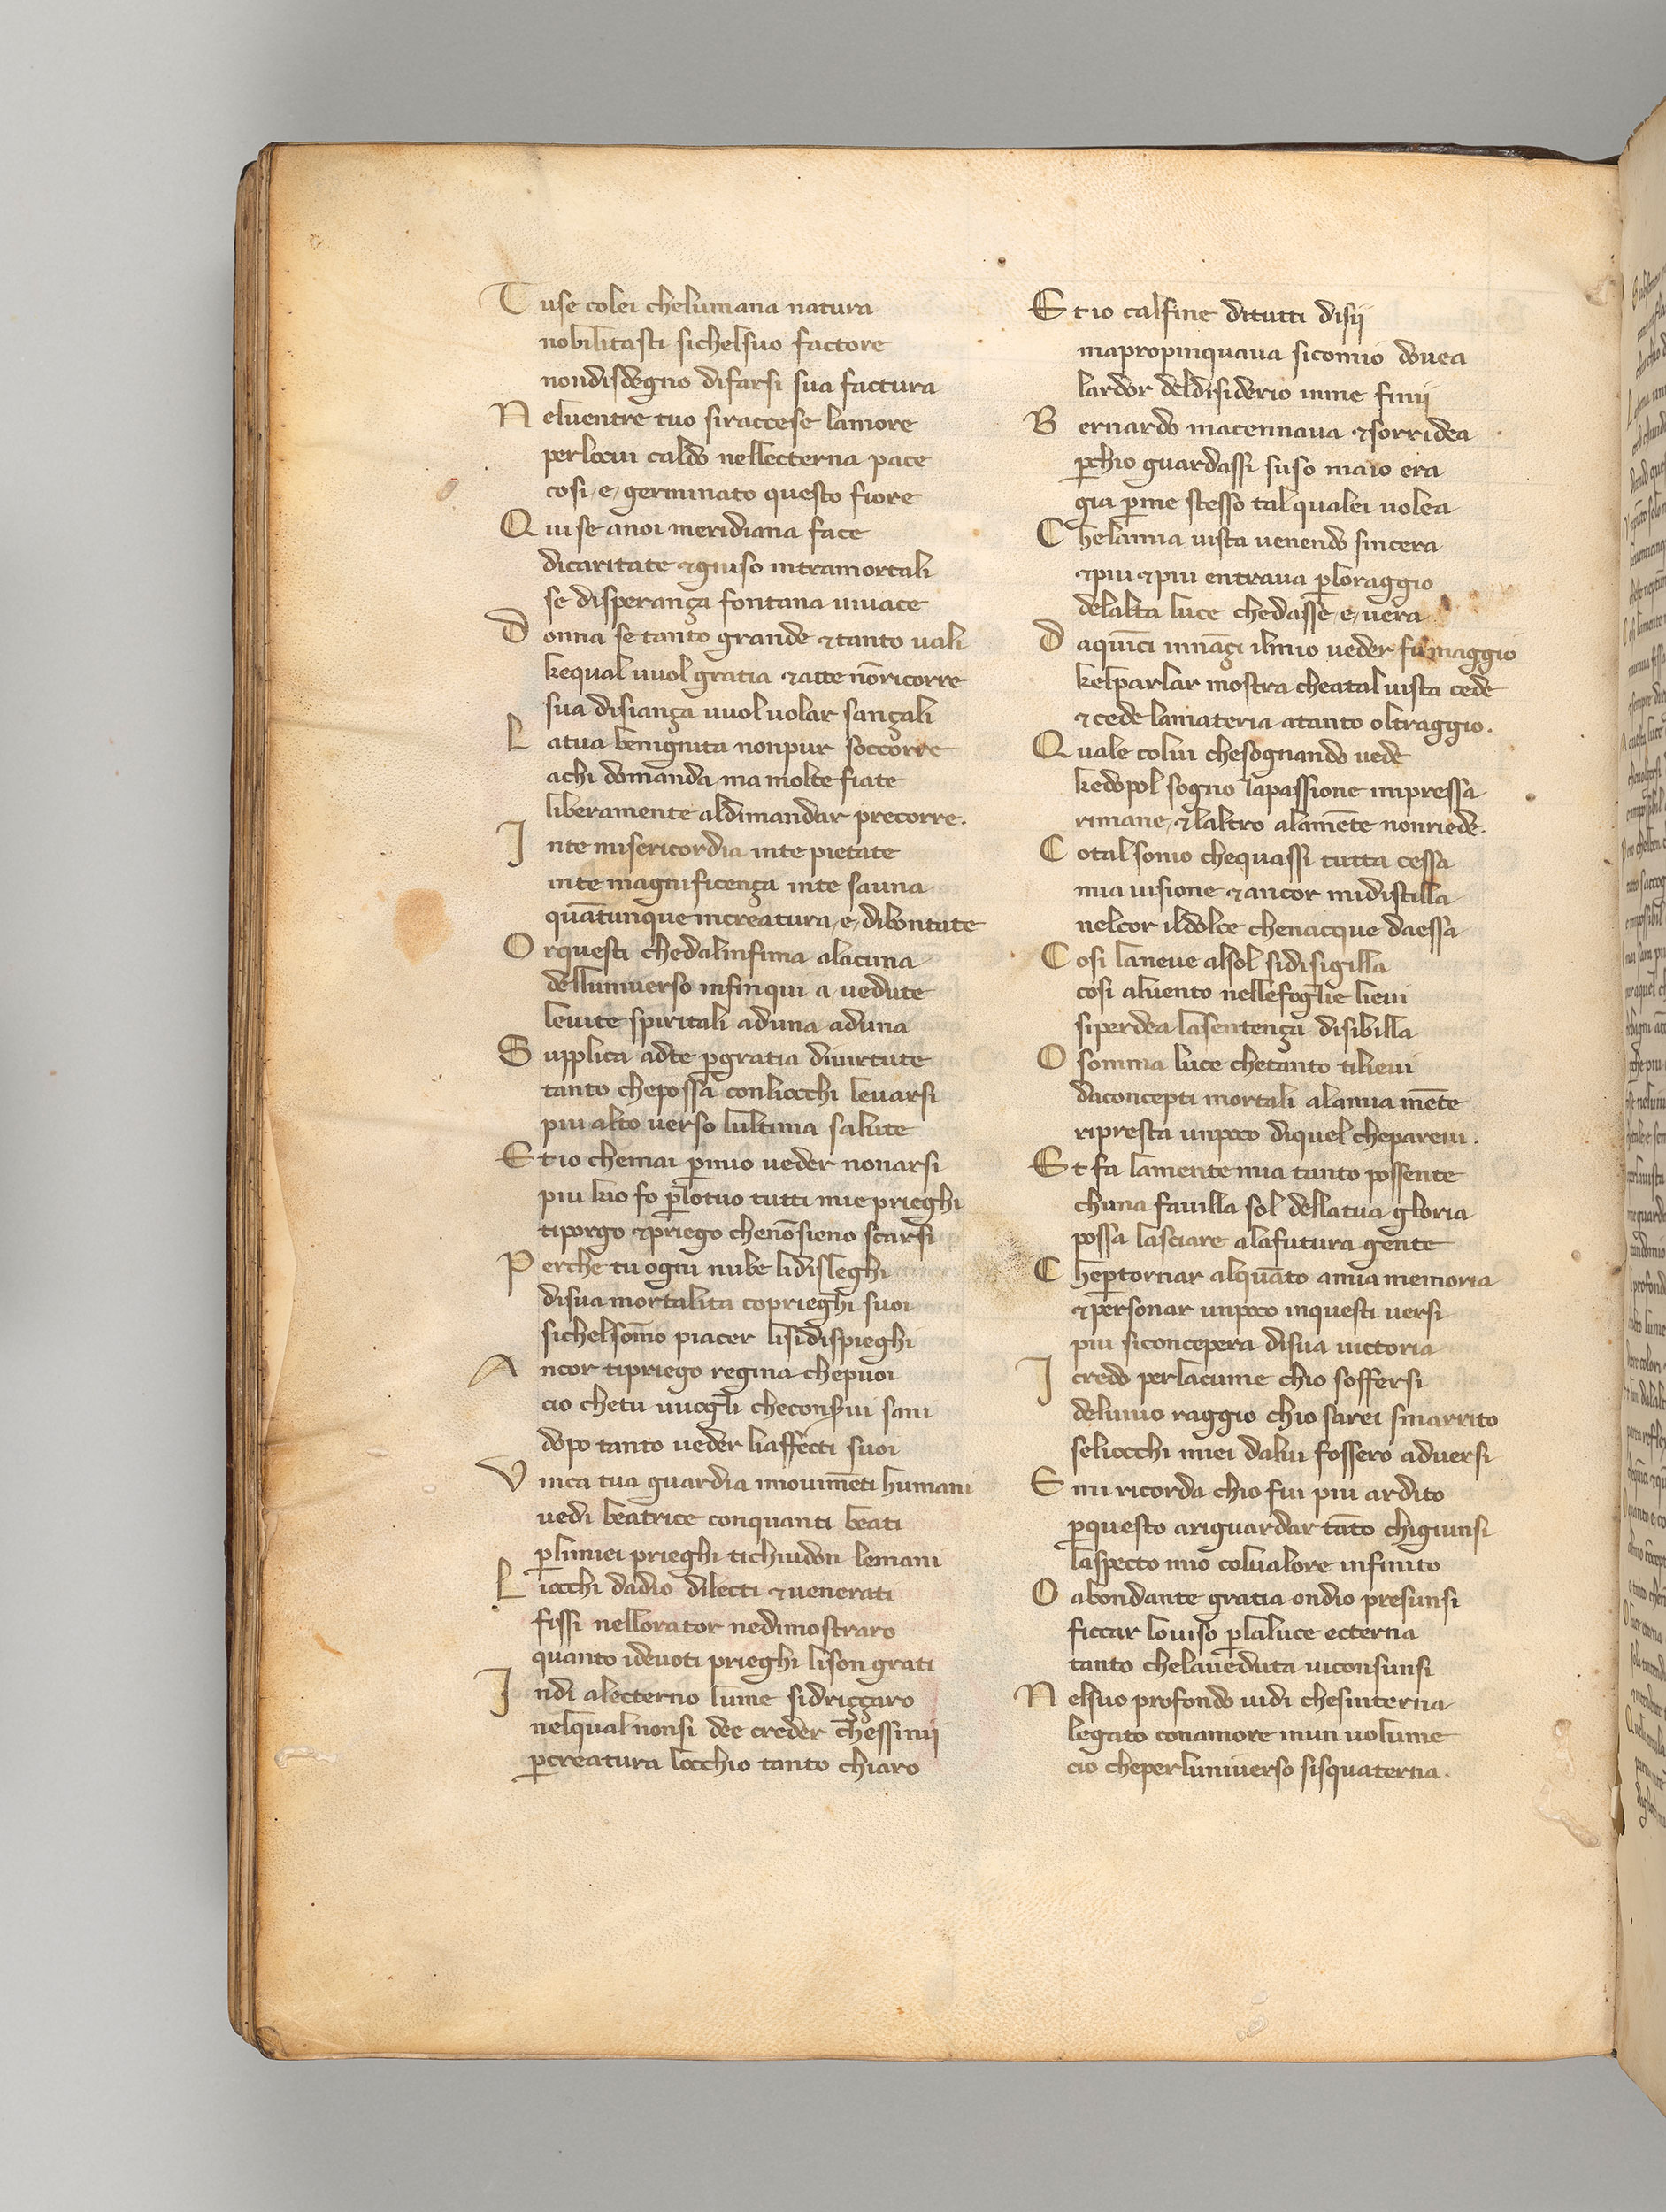 Tuse colei chelumana natura
nobilitasti sichelsuo factore
nondisdegno difarsi sua factura
Neluentre tuo siraccese lamore
perlocui caldo nellecterna pace
cosi, e, germinato questo fiore
Quise anoi meridiana face
dicaritate ⁊giuso intramortali
se disperança fontana uiuace
Donna se tanto grande ⁊tanto uali
kequal uuol gratia ⁊atte nōricorre
sua disiança uuol uolar sançali
Latua benignita nonpur soccorre
achi domanda, ma molte fiate
liberamente aldimandar precorre.
Inte misericordia inte pietate
inte magnificença inte sauna
quātunque increatura, e, dibontate
Orquesti chedalinfima alacuna
delluniuerso infinqui a uedute
leuite spiritali aduna aduna
Supplica adte ꝑgratia diuirtute
tanto chepossa conliocchi leuarsi
piu alto uerso lultima salute
Et io chemai ꝑmio ueder nonarsi
piu kio fo ꝑlotuo tutti mie prieghi
tiporgo ⁊priego chenōsieno scarsi
Perche tu ogni nube lidisleghi
disua mortalita coprieghi suoi
sichelsōmo piacer lisidispieghi
Ancor tipriego regina chepuoi
cio chetu uuogli checonsꝑui sani
dopo tanto ueder liaffecti suoi
Vinca tua guardia imouimēti humani
uedi beatrice conquanti beati
ꝑlimiei prieghi tichiudon lemani
Liocchi dadio dilecti ⁊uenerati
fissi nellorator nedimostraro
quanto ideuoti prieghi lison grati
Indi alecterno lume sidriççaro
nelqual nonsi dee creder chessinuij
ꝑcreatura locchio tanto chiaro
Et io calfine ditutti disij
mapropinquaua sicomio douea
lardor deldisiderio inme finij
Bernardo macennaua ⁊sorridea
ꝑchio guardassi suso maio era
gia ꝑme stesso tal qualei uolea
Chelamia uista uenendo sincera
⁊piu ⁊piu entraua ꝑloraggio
delalta luce chedasse, e, uera
Daquīci innāçi ilmio ueder fu maggio
kelparlar mostra cheatal uista cede
⁊cede lamateria atanto oltraggio.
Quale colui chesognando uede
kedopol sogno lapassione impressa
rimane, ⁊laltro alamēte nonriede.
Cotal sonio chequassi tutta cessa
mia uisione ⁊ancor midistilla
nelcor ildolce chenacque daessa
Cosi laneue alsol sidisigilla
cosi aluento nellefoglie lieui
siperdea lasentença disibilla
O somma luce chetanto tilieui
daconcepti mortali alamia mēte
ripresta unpoco diquel chepareui.
Et fa lamente mia tanto possente
chuna fauilla sol dellatua gloria
possa lasciare alafutura gente
Cheꝑtornar alquāto amia memoria
⁊personar unpoco inquesti uersi
piu siconcepera disua uictoria
I credo perlacume chio soffersi
deluiuo raggio chio sarei smarrito
seliocchi miei dalui fossero aduersi
E mi ricorda chio fui piu ardito
ꝑquesto ariguardar tāto chigiunsi
laspecto mio colualore infinito
O abondante gratia ondio presunsi
ficcar louiso ꝑlaluce ecterna
tanto chelaueduta uiconsunsi
Nelsuo profondo uidi chesinterna
legato conamore inun uolume
cio cheperluniuerso sisquaterna.